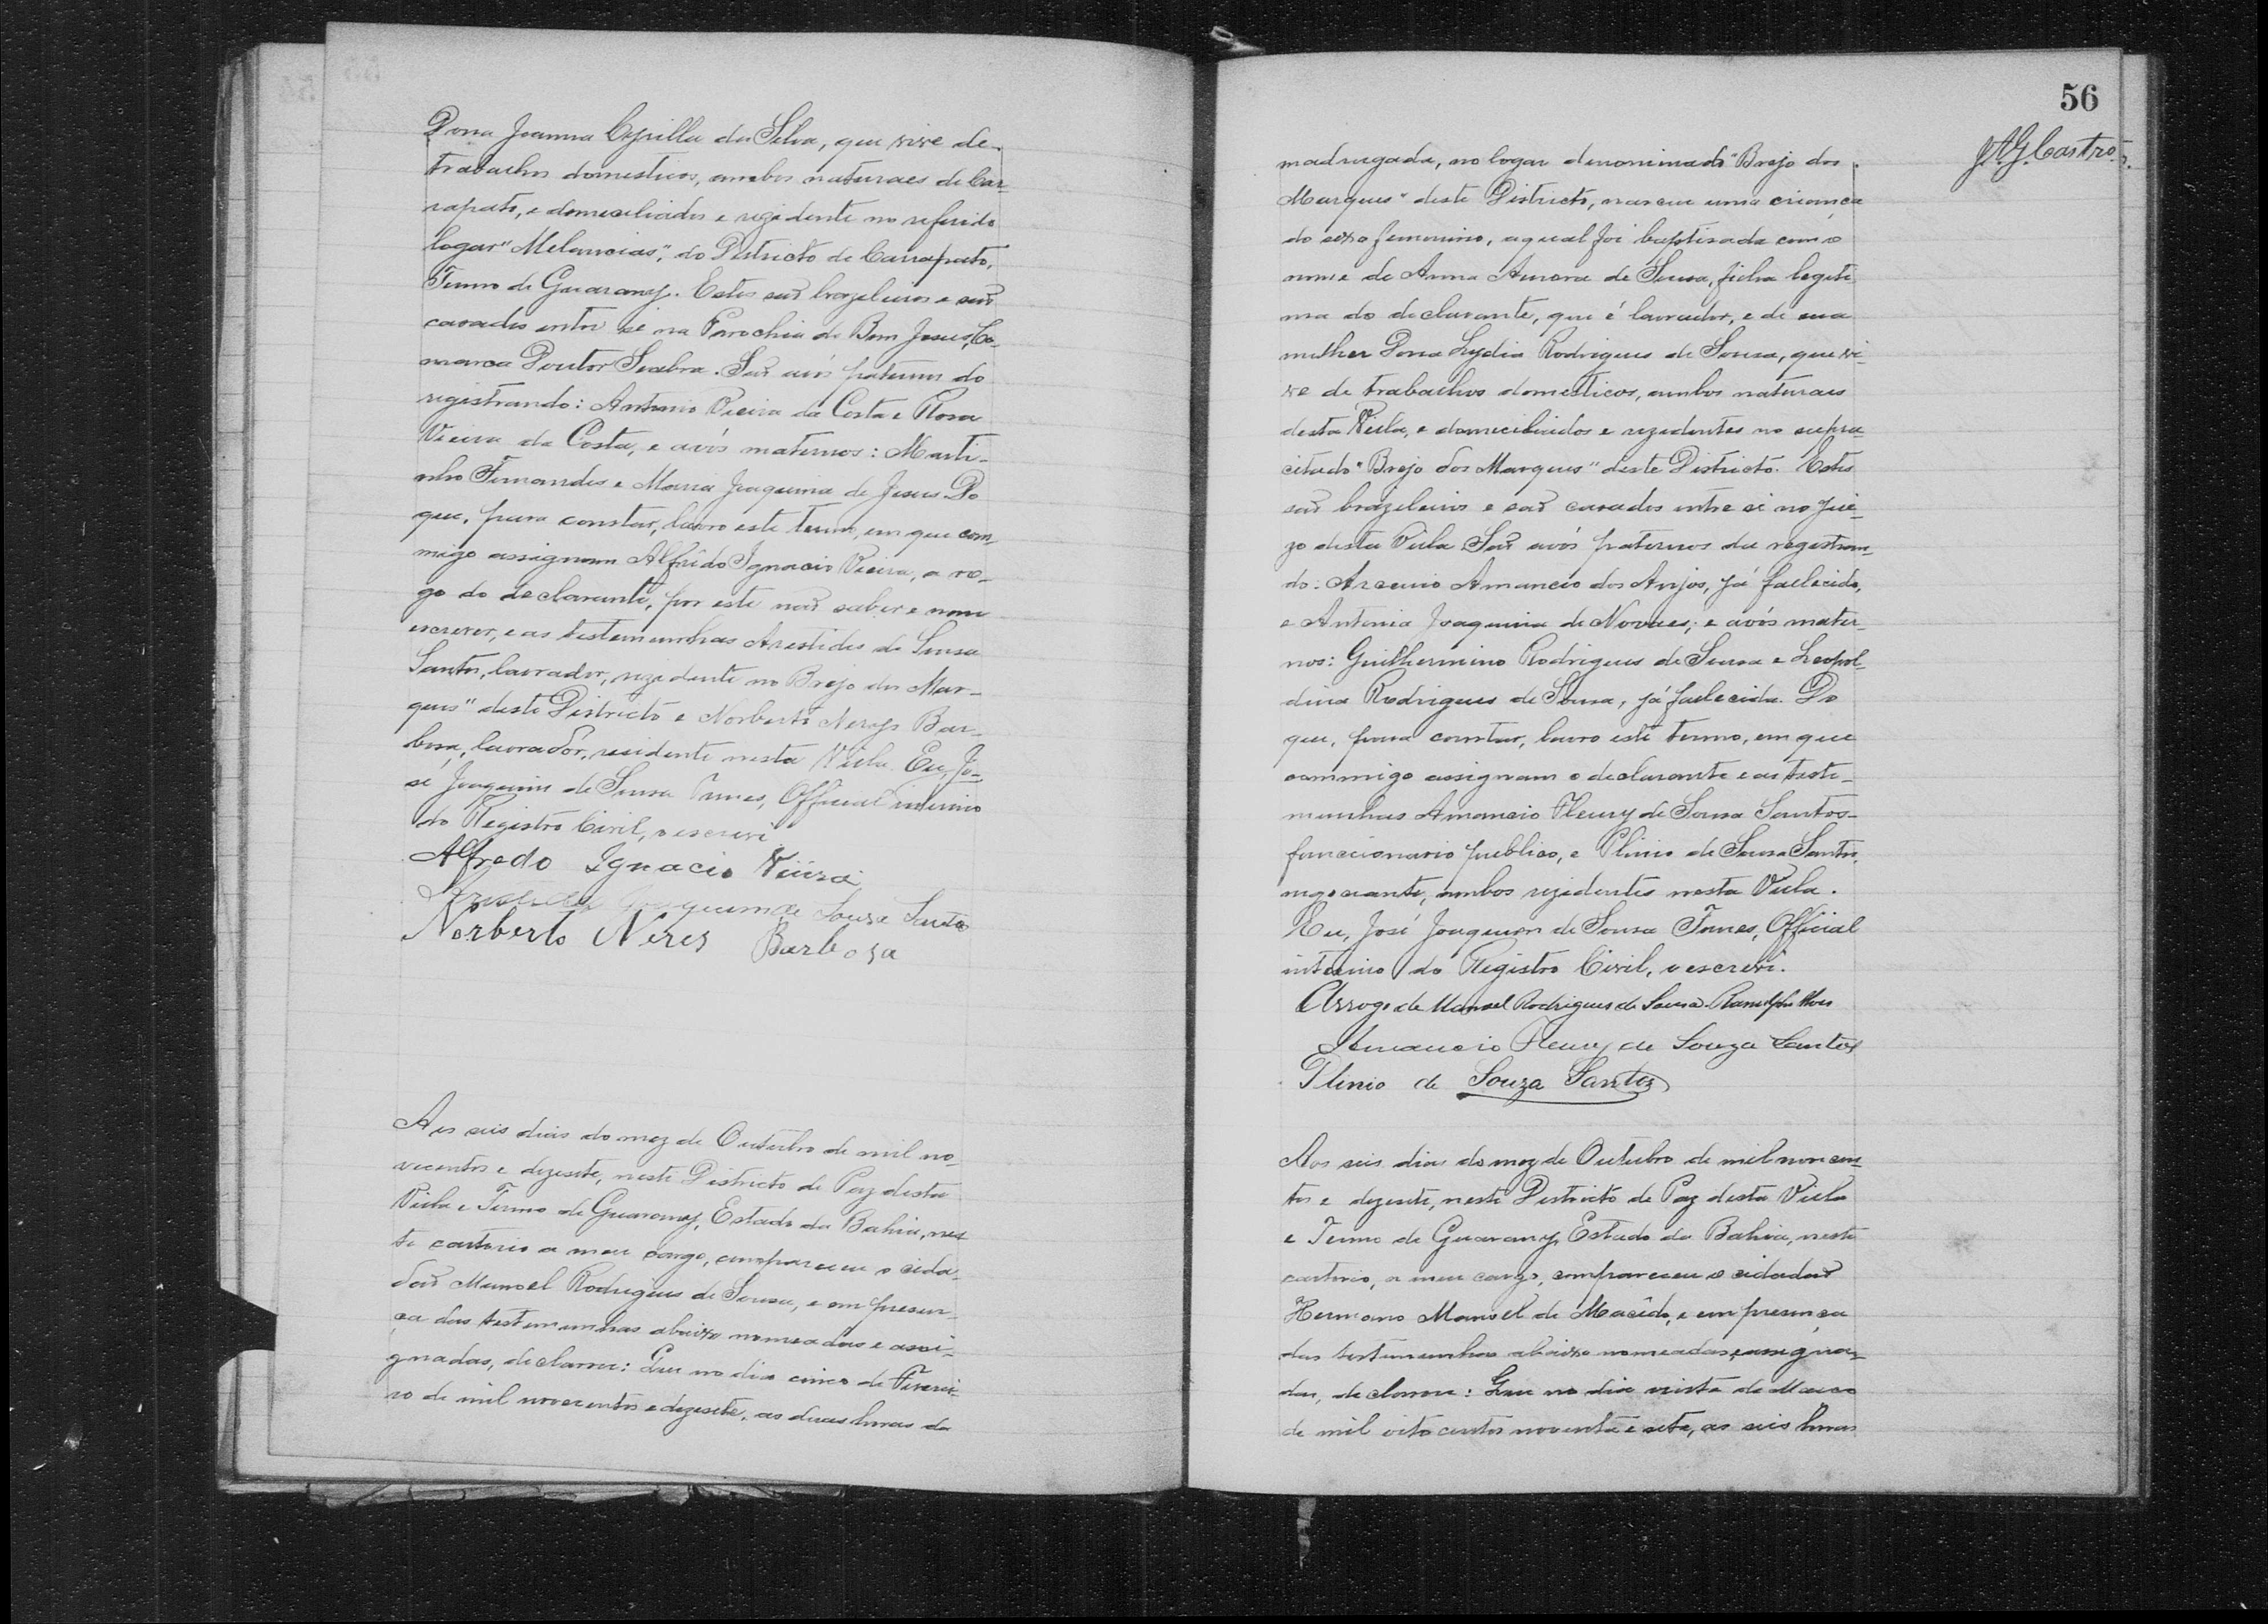 Dona Joanna Cyrilla da Silva, que vive de
trabachos domesticos, ambos naturaes de Car-
rapato, e domeciliados e rezidente no referido
logar "Melancias", do Districto de Carrapato,
Termo de Guarany. Estes saõ brazileiros e saõ
casados entre si na Parochia de Bom Jesus, Co-
marca Doutor Seabra. Saõ avós paternos do
registrando: Antonio Vieira da Costa e Rosa
Vieira da Costa, e avós maternos: Marti-
nho Fernandes e Maria Joaquina de Jesus. Do
que, para constar, lavro este termo, em que com-
migo assignam Alfrêdo Ignacio Vieira, a ro-
go do declarante, por este naõ saber e nem
escrever, e as testemunhas Arestides de Sousa
Santos, lavrador, rezidente no Brejo dos Mar-
ques" deste Districto e Norberto Nerys Bar-
bosa, lavrador, residente nesta Villa. Eu, Jo-
sé Joaquim de Sousa Tunes, Official interino
do Registro Civil, o escrevi
Alfredo Ignacio Viuira
Joaquim de Souza Santo
Norberto Neres Barbosa
Aos seis dias do mez de Outubro de mil no-
vecentos e dezesete, neste Districto de Paz desta
Villa e Termo de Guarany, Estado da Bahia, nes-
te cartorio a meu cargo, compareceu o cida-
daõ Manoel Rodrigues de Sousa, e em presen-
ça das testemunhas abaixo nomeadas e assi-
gnadas, declarou: Que no dia cinco de Feverei-
ro de mil novecentos e dezesete, as duas horas da
56
J.A.G. Castro
madrugada, no logar denominado "Brejo dos
Marques" deste Districto, nasceu uma criança
do sexo femenino, a qual foi baptisada com o
nome de Anna Aurora de Sousa, filha legiti-
ma do declarante, que é lavrador, e de sua
mulher Dona Lydia Rodrigues de Sousa, que vi-
ve de trabachos domesticos, ambos naturaes
desta Villa, e domeciliados e rezidentes no supra-
citado "Brejo dos Marques" deste Districto. Estes
saõ brazileiros e saõ casados entre si no Jui-
zo desta Villa. Saõ avós paternos da registran-
do: Arcenio Amancio dos Anjos, já fallecido,
e Antonia Joaquina de Novaes; e avós mater-
nos: Guilhermino Rodrigues de Sousa e Leopol-
dina Rodrigues de Sousa, já fallecida. Do
que, para constar, lavro este termo, em que
commigo assignam o declarante e as teste-
munhas Amancio Fleury de Sousa Santos-
funccionario publico, e Plinio de Sousa Santos,
negociante, ambos rezidentes nesta Villa.
Eu, José Joaquim de Sousa Tunes, Official
interino do Registro Civil, o escrevi.
Arrogo de Manoel Rodrigues de Sousa. Ranulpho
Amancio Fleury de Souza Santos
Plinio de Souza Santos
Aos seis dias do mez de Outubro de mil novecen-
tos e dezesete, neste Districto de Paz desta Villa
e Termo de Guarany, Estado da Bahia, neste
cartorio, a meu cargo, compareceu o cidadaõ
Hermano Manoel de Macêdo, e em presença
das testemunhas abaixo nomeadas e assigna-
das, declarou: Que no dia vinte de Março
de mil oito centos noventa e sete, as seis horas